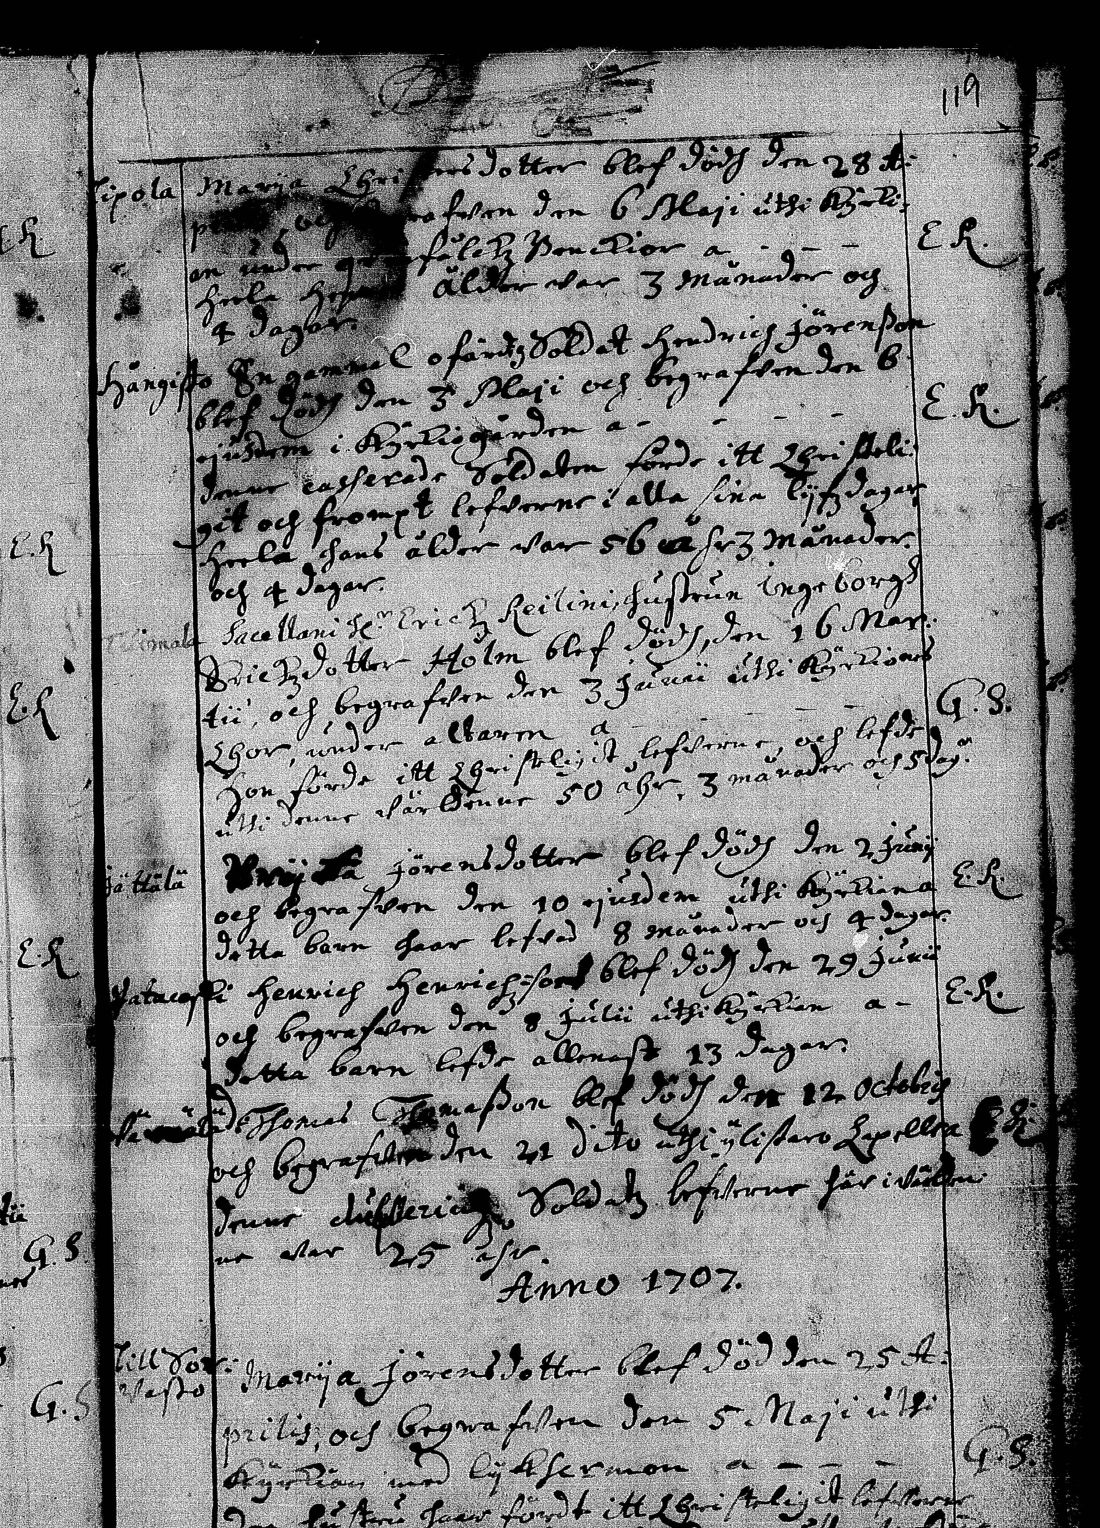 119
Tipola Marija Chri ersdotter blef dödh den 28 A:
och afven den 6 Maji uthi Kyrki:
an under a - - -
heela ålder var 3 månader och
4 dagar. E R.
Hångisto En gammal ofärdig Soldat Hendrich Jörensson
blef dödh den 3 Maji och begrafven den 6
ejusdem i Kyrkiogården a - - - - E. R.
denne casserade Soldaten förde itt Christeli:
git och fromt lefverne i alla sina lijfzdagar
heela hans ålder var 56 åhr 3 månader
och 4 dagar.
Sacellani Hr Erici Keilini, hustrun Ingeborgh
Erichzdotter Holm blef dödh, den 16 Mar:
tii, och begrafven den 3 Junii uthi Kyrkiones
Chor, under altaren a - - - - G. S.
Hon förde itt Christeligit lefverne, och lefde
uthi denne världenne 50 åhr, 3 månader och 5 dag.
Jättälä Jörensdotter blef dödh den 2 Junij
och begrafven den 10 ejusdem uthi Kyrkian a E. R.
detta barn haar lefvad 8 månader och 4 dagar.
Henrich Henrichzson blef dödh den 29 Junii
och begrafven den 8 Julii uthi Kyrkian a - E. R.
detta barn lefde allenast 13 dagar.
Thomas Thomasson blef dödh den 12 Octobris
och begrafven den 21 dito uthi ylistaro Capellen E R.
denne Soldatz lefverne här i världen:
ne var 25 åhr.
Anno 1707.
Marija Jörensdotter blef död den 25 A:
prilis, och begrafven den 5 Maji uthi
Kyrkian med lijkhsermon a - - - G. S.
haar fördt itt Christeligit lefverne
E R
E. R
E. R
E. R
G. S
G. S